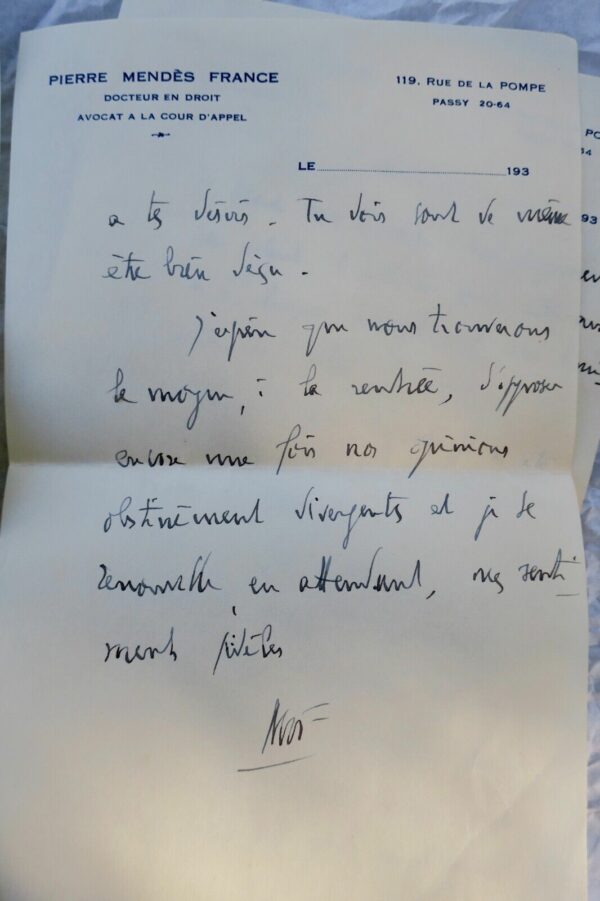 PIERRE MENDÈS FRANCE
DOCTEUR EN DROIT
AVOCAT A LA COUR D'APPEL
119, RUE DE LA POMPE
PASSY 20-64
LE 193
a tes désirs. Tu dois tout de même
être bien déçu.
J'espère que nous trouverons
le moyen, à la rentrée, d'opposer
encore une fois nos opinions
obstinément divergents et je te
renouvelle en attendant, mes senti
ments fidèles
93